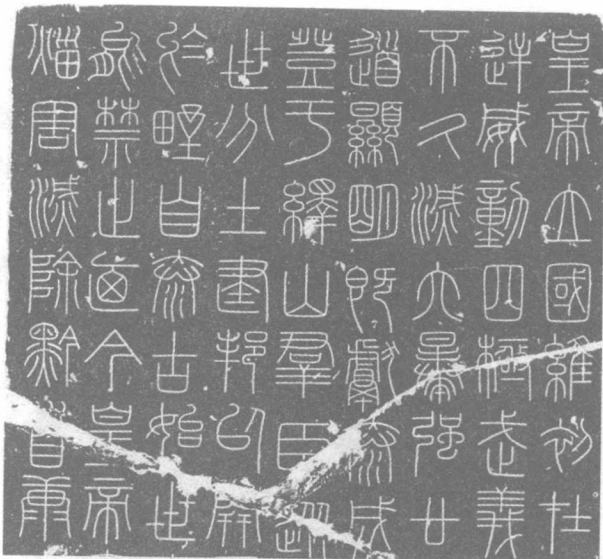 皇帝立國維初在
逆威動四極武義
不久滅六暴强廿
道顯明既獻泰成
登于繹山羣臣從
世分土建邦以開
於野自泰古始世
能禁止迺今皇帝
災害滅除黔首康